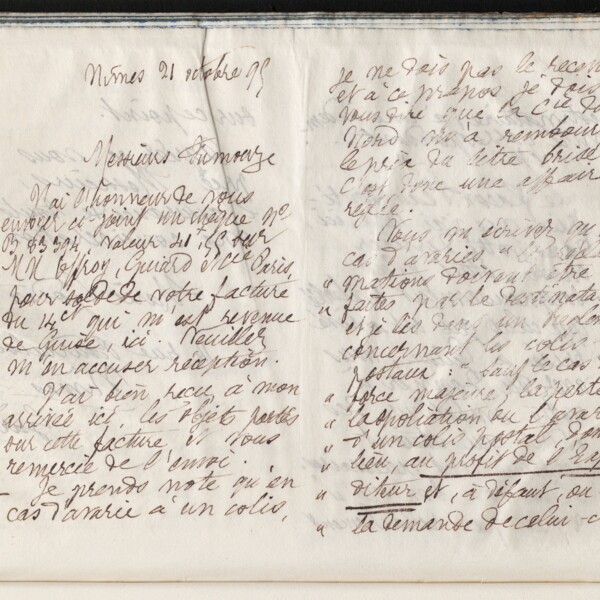 Nîmes 21 octobre 95
Messieurs Dumouze
J'ai l'honneur de vous
envoyer ci-joint un chèque No
valeur 41f,55 sur
MM Offroy, Guiard & Cie Paris,
pour solde de votre facture
du 14 ct qui m'est revenue
de Guise, ici. Veuillez
m'en accuser réception.
J'ai bien reçu à mon
arrivée ici, les objets portés
sur cette facture et vous
remercie de l'envoi.
Je prends note qu'en
cas d'avarie à un colis,
je ne dois pas le recev
et à ce propos je dois
vous dire que la Cie du
Nord m'a rembour
le prix du litre brisé
c'est donc une affair
réglée.
Vous m'écrivez qu
cas d'avaries "
" mations doivent être
" faites par le destinata
et je lis dans un Réglem
concernant les colis
postaux : " Sauf le cas
" force majeure, la perte
" la spoliation ou l'avar
" d'un colis postal, don
" lieu, au profit de l'Exp
" diteur et, à défaut, ou
" la demande de celui-c